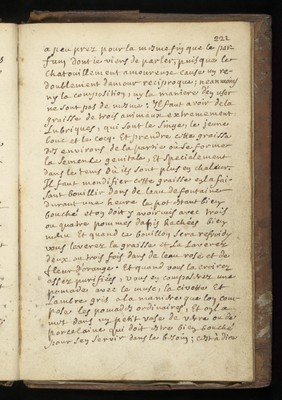 221
a peu prez pour la mesme fin que le par-
fum dont ie viens de parler, puisque les
chatouillement amoureuse cause un re-
doublement damour reciproque; neanmoins
ny la composition, ny la maniere d'en user
ne sont pas de mesme: Il faut avoir de la
graisse de trois animaux extremement
Lubriques, qui sont le singe, le jeune
bouc et le coq. Et prendre cette graisse
des environs de la partie ou se forme
la semence genitale, et specialement
dans le tems ou ils sont plus en chaleur.
Il faut mondifier cette graisse en la fai-
sant bouillir dans de leau de fontaine
durant une heure le pot estant bien
bouché et on doit y avoir mis avec trois
ou quatre pommes dapis hachées bien
menu. Et quand ce bouillon sera refroidy
vous leverez la graisse et la laverez
deux ou trois fois dans de leau rose et de
fleur d'orange. Et quand vous la croirez
assez purifiée, vous en composerez une
pomade avec le musc, la civette et
Lambre gris a la maniere que lon com-
pose les pomades ordinaires, Et on la
met dans un petit vase de verre ou de
porcelaine qui doit estre bien bouché
pour sen servir dans le besoin; c'est à dire